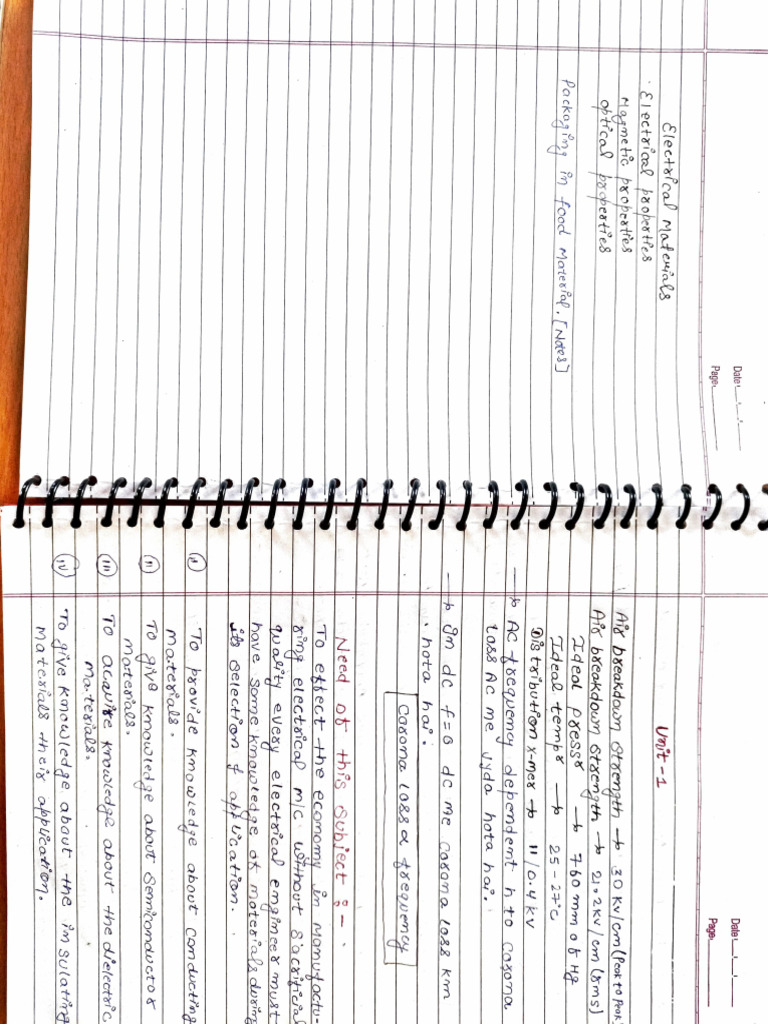 Date:
Page:
Electrical Materials
· Electrical properties
Magnetic properties
optical properties
Packaging in food Material. [Notes]
Date:
Page:
Unit-1
Air breakdown Strength → 30 kv/cm (Peak to Peak)
Air breakdown Strength → 21.2 kv/cm (rms)
Ideal pressr → 760 mm of Hg
Ideal tempr → 25-27°C
Distribution x-mer → 11/0.4 kv
→ AC frequency dependent h to corona
loss AC me jyda hota hai.
→ In dc f=0 dc me corona loss km
hota hai.
corona loss α frequency
Need of this Subject :-
To effect the economy in Manufactu-
ring electrical m/c without Sacrificial
quality every electrical engineer must
have some knowledge of materials during
its selection & application.
(i) To provide knowledge about conducting
materials.
(ii) To give knowledge about Semiconductor
materials.
(iii) To acquire knowledge about the dielectric
materials.
(iv) To give knowledge about the insulating
materials their application.